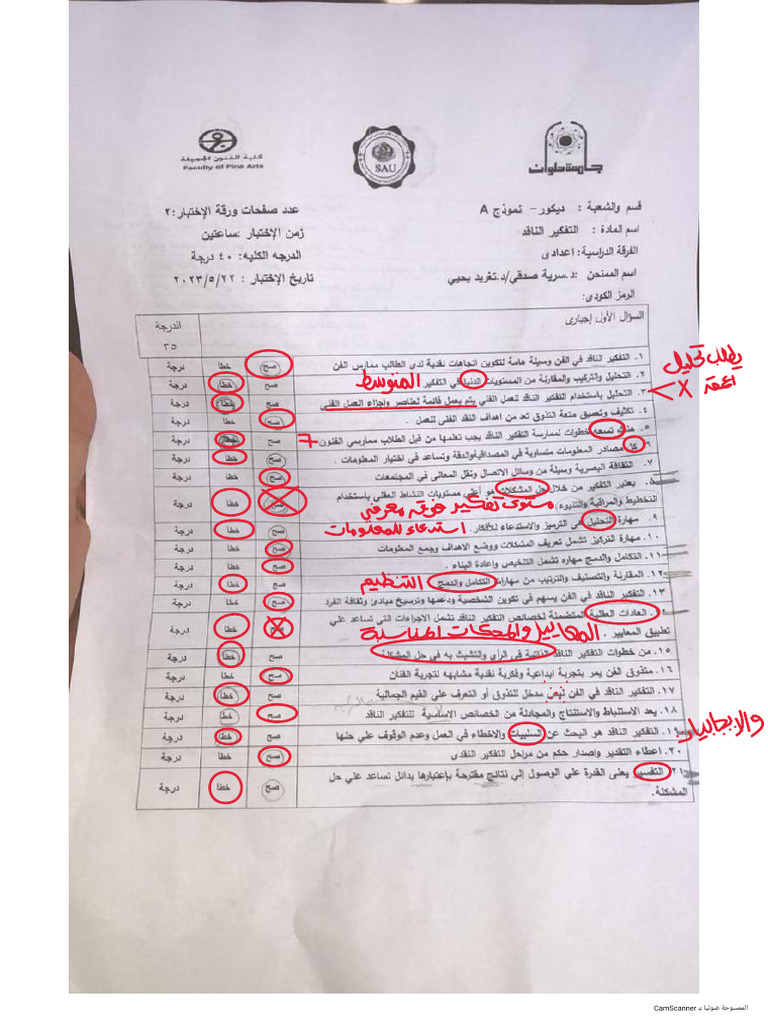 كلية الفنون الجميلة
Faculty of Fine Arts
SAU
جامعة حلوان
قسم والشعبة : ديكور- نموذج A
عدد صفحات ورقة الإختبار:٢
اسم المادة : التفكير الناقد
زمن الإختبار :ساعتين
الفرقة الدراسية: اعدادى
الدرجه الكليه: ٤٠ درجة
اسم الممتحن :د.سرية صدقي/د.تغريد يحيي
تاريخ الإختبار : ٢٠٢٣/٥/٢٢
الرمز الكودى:
السؤال الأول إجبارى
الدرجة
٣٥
١. التفكير الناقد في الفن وسيلة هامة لتكوين اتجاهات نقدية لدي الطالب ممارس الفن صح خطا درجة
٢. التحليل والتركيب والمقارنة من المستويات الدنيا في التفكير المتوسط صح خطا درجة
يطلب تحليل
اعمق
٣. التحليل باستخدام التفكير الناقد للعمل الفني يتم بعمل قائمة لعناصر واجزاء العمل الفني صح خطا درجة
X
٤. تكثيف وتعميق متعة التذوق تعد من اهداف النقد الفني للعمل . صح خطا درجة
٥. هناك تسعه خطوات لممارسة التفكير الناقد يجب تعلمها من قبل الطلاب ممارسي الفنون 7 صح خطا درجة
٦. كل مصادر المعلومات متساوية في المصداقية والدقة وتساعد في اختيار المعلومات . صح خطا درجة
٧. الثقافة البصرية وسيلة من وسائل الاتصال ونقل المعاني في المجتمعات صح خطا درجة
يعتبر التفكير من خلال حل المشكلات هو أعلي مستويات النشاط العقلي باستخدام
التخطيط والمراقبة والتنبؤ، مستوى تفكير فوق معرفي صح خطا درجة
٩. مهارة التحليل هي الترميز والاستدعاء للأفكار. استدعاء للمعلومات صح خطا درجة
١٠. مهارة التركيز تشمل تعريف المشكلات ووضع الاهداف وجمع المعلومات صح خطا درجة
١١. التكامل والدمج مهاره تشمل التلخيص وإعادة البناء . صح خطا درجة
١٢. المقارنة والتصنيف والترتيب من مهارات التكامل والدمج التنظيم صح خطا درجة
١٣. التفكير الناقد في الفن يسهم في تكوين الشخصية ودعمها وترسيخ مبادئ وثقافة الفرد صح خطا درجة
العادات العقلية المتضمنة لخصائص التفكير الناقد تشمل الاجراءات التى تساعد علي
تطبيق المعايير . المعايير والمحكات المناسبة صح خطا درجة
١٥. من خطوات التفكير الناقد الذاتية في الرأي والتشبث به في حل المشكلة صح خطا درجة
١٦. متذوق الفن يمر بتجربة ابداعية وفكرية نقدية مشابهه لتجربة الفنان صح خطا درجة
١٧. التفكير الناقد في الفن ليس مدخل للتذوق أو التعرف علي القيم الجمالية صح خطا درجة
١٨. يعد الاستنباط والاستنتاج والمجادلة من الخصائص الاساسية للتفكير الناقد صح خطا درجة
١٩. التفكير الناقد هو البحث عن السلبيات والاخطاء في العمل وعدم الوقوف علي حلها صح خطا درجة
والايجابيات
٢٠. اعطاء التقدير واصدار حكم من مراحل التفكير النقدى صح خطا درجة
٢١. التفسير يعنى القدرة علي الوصول إلي نتائج مقترحة بإعتبارها بدائل تساعد علي حل
المشكلة . صح خطا درجة
الممسوحة ضوئيا بـ CamScanner